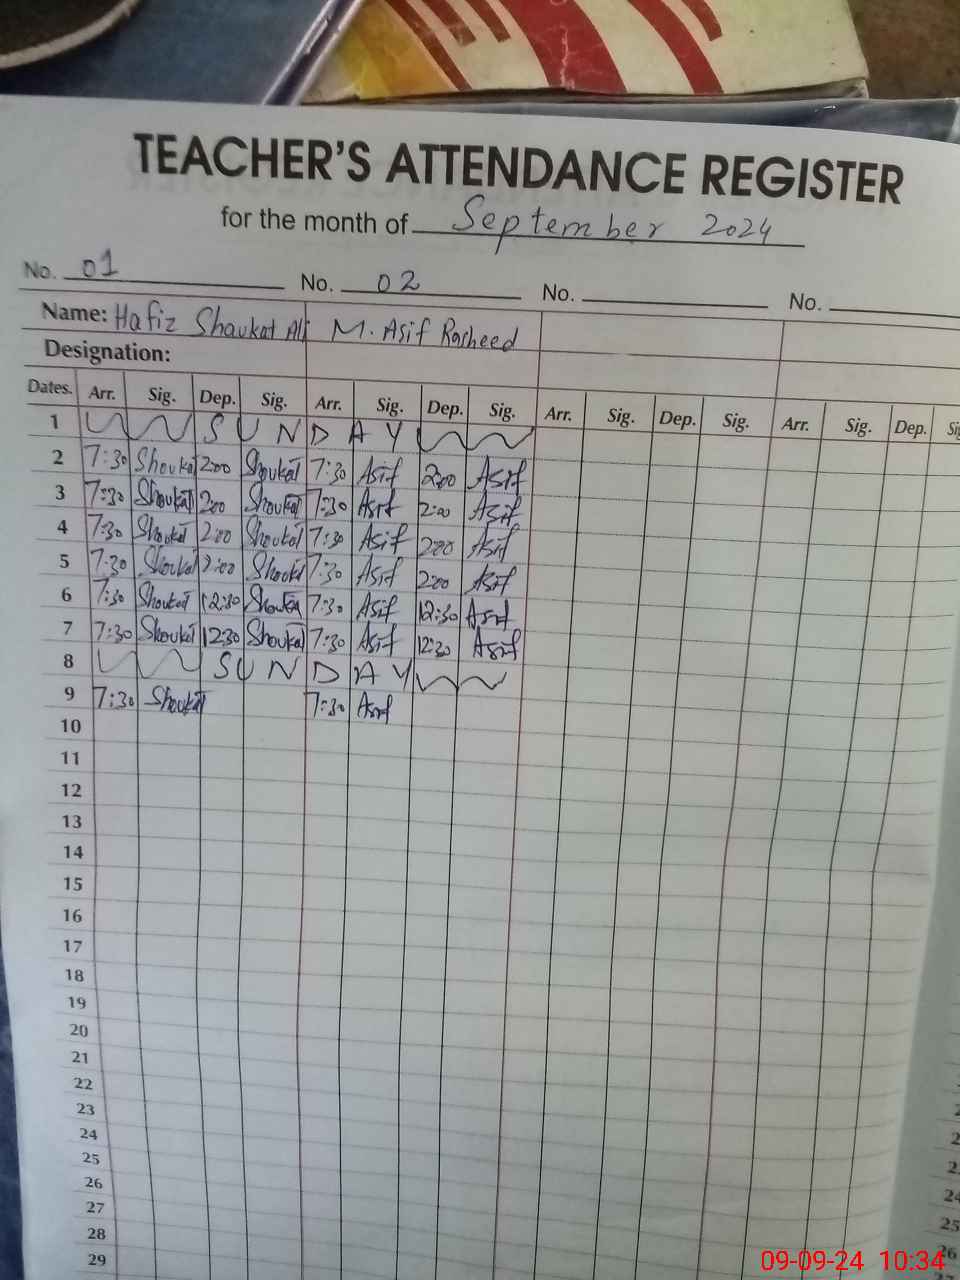 TEACHER'S ATTENDANCE REGISTER
for the month of September 2024
No. 01 No. 02 No. No.
Name: Hafiz Shaukat Ali M. Asif Rasheed
Designation:
Dates. Arr. Sig. Dep. Sig. Arr. Sig. Dep. Sig. Arr. Sig. Dep. Sig. Arr. Sig. Dep. Sig
1 SUNDAY
2 7:30 Shoukat 2:00 Shoukat 7:30 Asif 2:00 Asif
3 7:30 Shoukat 2:00 Shoukat 7:30 Asif 2:00 Asif
4 7:30 Shoukat 2:00 Shoukat 7:30 Asif 2:00 Asif
5 7:30 Shoukat 2:00 Shoukat 7:30 Asif 2:00 Asif
6 7:30 Shoukat 12:30 Shoukat 7:30 Asif 12:30 Asif
7 7:30 Shoukat 12:30 Shoukat 7:30 Asif 12:30 Asif
8 SUNDAY
9 7:30 Shoukat 7:30 Asif
10
11
12
13
14
15
16
17
18
19
20
21
22
23
24
25
26
27
28
29
24
25
26
09-09-24 10:34